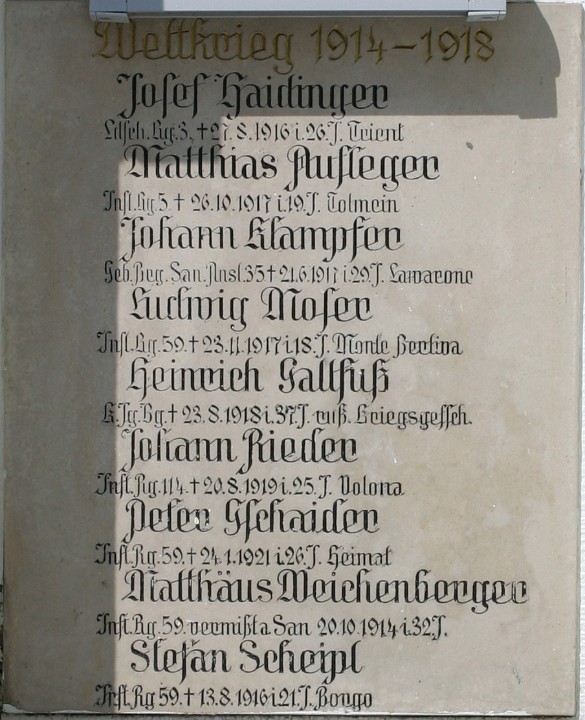 Weltkrieg 1914–1918
Josef Haidinger
Ldsch. Rg. 3. † 27. 8. 1916 i. 26. J. Trient
Matthias Aufleger
Inft. Rg. 5 † 26. 10. 1917 i. 19. J. Tolmein
Johann Klampfer
Geb. Brg. San. Anst. 35 † 21. 6. 1917 i. 29. J. Lawarone
Ludwig Moser
Inft. Rg. 59. † 23. 11. 1917 i. 18. J. Monte Bertiva
Heinrich Gallfuß
K. Jg. Bg. † 23. 8. 1918 i. 37. J. ruß. Kriegsgefsch.
Johann Rieder
Inft. Rg. 114. † 20. 8. 1919 i. 25. J. Volona
Peter Gschaider
Inft. Rg. 59. † 24. 1. 1921 i. 26. J. Heimat
Matthäus Weichenberger
Inft. Rg. 59. vermißt a San 20. 10. 1914 i. 32. J.
Stefan Scheipl
Inft. Rg 59. † 13. 8. 1916 i. 21. J. Borgo